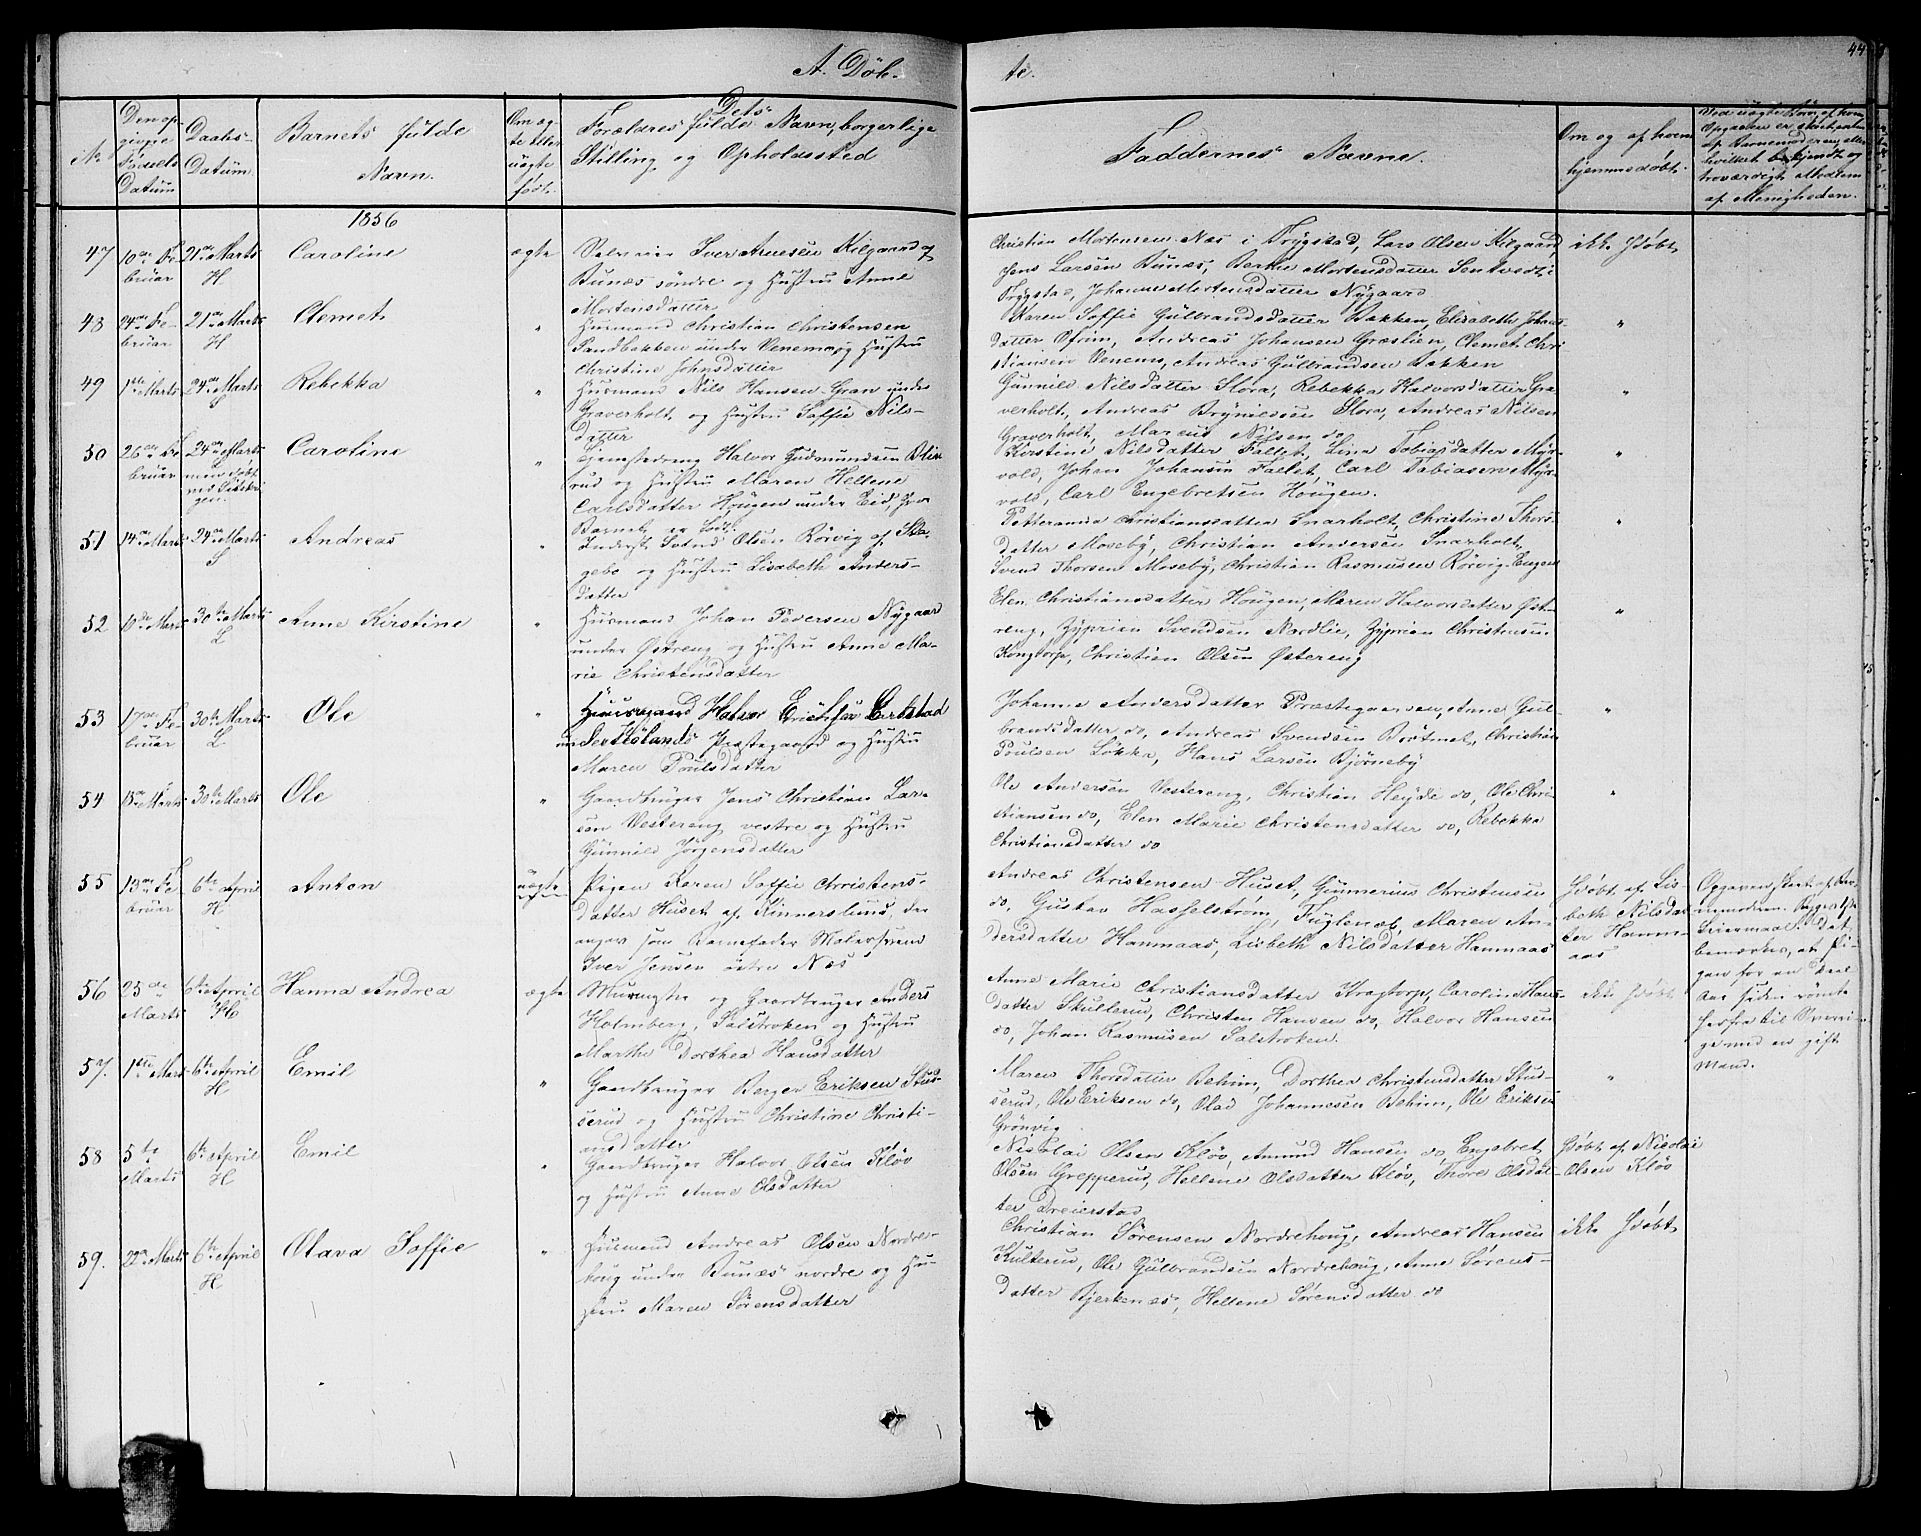 44
A. Døb-
te.
No
Den op-
givne
Fødsels
Datum
Daabs-
Datum.
Barnets fulde
Navn.
Om æg-
te eller
uægte
født.
Dets
Forældres fulde Navn, borgerlige
Stilling og Opholdssted
Faddernes Navne.
Om og af hvem
hjemmedøbt.
Ved uægte Børn, af hvem
Opgaven er skeet, enten
af Barnemoderen, eller
hvilket bekjendt og
troværdigt Medlem
af Menigheden.
1856
47
10de Fe-
bruar
21de Marts
H
Caroline
ægte
Selveier Iver Arnesen Kilgaard af
Bunæs søndre og Hustru Anne
Mortensdatter
Christian Mortensen Næs i Trygstad, Lars Olsen Kilgaard,
Jens Larsen Bunæs, Berthe Mortensdatter Sentvedt i
Trygstad, Johanne Mortensdatter Nygaard
ikke hjdøbt
48
24de Fe-
bruar
21de Marts
H
Clemet
"
Husmand Christian Christensen
Sandbakken under Venemo og Hustru
Christine Johnsdatter
Karen Soffie Gulbrandsdatter Bakken, Elisabeth Johans-
datter Ofrim, Andreas Johansen Græslien, Clemet Chri-
stiansen Venemo, Andreas Gulbrandsen Bakken
"
49
1ste Marts
24de Marts
S
Rebekka
"
Husmand Nils Hansen Gran under
Graverholt og Hustru Soffie Nils-
datter
Gunnild Nilsdatter Slora, Rebekka Halvorsdatter Gra-
verholt, Andreas Brynildsen Slora, Andreas Nilsen
Graverholt, Marcus Nilsen do
"
50
26de Fe-
bruar
24de Marts
Caroline
"
Tjenestedreng Halvor Gudmundsen
rud og Hustru Maren Hellene
Carlsdatter Hougen under Eid, hvor
Barnet er født.
Kirstine Nilsdatter Fallet, Lina Tobiasdatter Myr-
vold, Johan Johansen Fallet, Carl Tobiasen Myr-
vold, Carl Engebretsen Hougen.
"
51
14de Marts
24de Marts
S
Andreas
"
Inderst Svend Olsen Rörvig af Ska-
gebe og Hustru Lisabeth Anders-
datter
Petteranna Christiansdatter Snarholt, Christine Thors-
datter Moseby, Christian Andersen Snarholt,
Svend Thorsen Moseby, Christian Rasmusen Rörvig-Engen
"
52
10de Marts
30te Marts
L
Anne Kirstine
"
Husmand Johan Pedersen Nygaard
under Østreng og Hustru Anne Ma-
rie Christensdatter
Elen Christiansdatter Hougen, Maren Halvorsdatter Øst-
reng, Zyprian Svendsen Nordlie, Zyprian Christensen
Kongtorp, Christian Olsen Østereng
"
53
17de Fe-
bruar
30te Marts
L
Ole
"
Huusmand Halvor Erichsen Carlstad
under Eidsbergs Præstegaard og Hustru
Maren Poulsdatter
Johanne Andersdatter Præstegaarden, Anne Gul-
brandsdatter do, Andreas Svendsen Brötnet, Christian
Poulsen Løkka, Hans Larsen Bjørneby
"
54
15de Marts
30te Marts
Ole
"
Gaardbruger Jens Christian Lar-
sen Vestereng vestre og Hustru
Gunnild Jørgensdatter
Ole Andersen Vestereng, Christian Heyde do, Ole Chri-
stiansen do, Elen Marie Christensdatter do, Rebekka
Christiansdatter do
"
55
13de Fe-
bruar
6te April
H
Anton
uægte
Pigen Karen Soffie Christens-
datter Huset af Kinnerslund, der
angav som Barnefader Malersvend
Iver Jensen østre Næs
Andreas Christensen Huset, Gunnerius Christensen
do, Gustav Hasselstrøm, Fuglenæb, Maren An-
dersdatter Hanmaas, Lisbeth Nilsdatter Hanmaas
Hjdøbt af Lis-
beth Nilsdat-
ter Hanm-
aas
Opgaven skeet af Bar-
nemoderen. Begges 1ste
Leiermaal. Det
bemærkes, at Pi-
gen for en Deel
Aar siden rømte
herfra til Sverri-
ge med en gift
Mand.
56
25de
Marts
6te April
H
Hanna Andrea
ægte
Murmester og Gaardbruger Anders
Holmberg, Salstroken og Hustru
Marthe Dorthea Hansdatter
Anne Marie Christiansdatter Kragtorp, Caroline Hans-
datter Skullerud, Christen Hansen do, Halvor Hansen
do, Johan Rasmusen Salstroken.
ikke hjdøbt
57.
1ste Marts
6te April
H
Emil
"
Gaardbruger Berger Eriksen Stus-
serud og Hustru Christine Christi-
ansdatter
Maren Thorsdatter Behim, Dorthea Christensdatter Stud-
serud, Ole Eriksen do, Olad Johannesen Behim, Ole Eriksen
Grönvig
"
58
5te
Marts
6te April
H
Emil
"
Gaardbruger Halvor Olsen Kløv
og Hustru Anne Olsdatter
Nicolai Olsen Kløv, Amund Hansen do, Engebret
Olsen Grepperud, Hellene Olsdatter Kløv, Thore Olsdat-
ter Dreierstad
Hjdøbt af Nicolai
Olsen Kløv
59.
22de Marts
6te April
H
Olava Soffie
"
Husmand Andreas Olsen Nordre-
houg under Bunæs nordre og Hu-
stru Maren Sørensdatter
Christian Sørensen Nordrehoug, Andreas Hansen
Kulterud, Ole Gulbrandsen Nordrehoug, Anne Sørens-
datter Bjerkenæs, Hellene Sørensdatter do
ikke hjdøbt